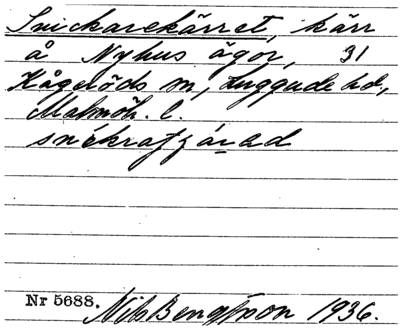 Snickarekärret, kärr
å Nyhus ägor, 31
Kågeröds sn, Luggude hd,
Malmöh. l.
snékrat̯ȷárad
Nr 5688. Nils Bengtsson 1936.